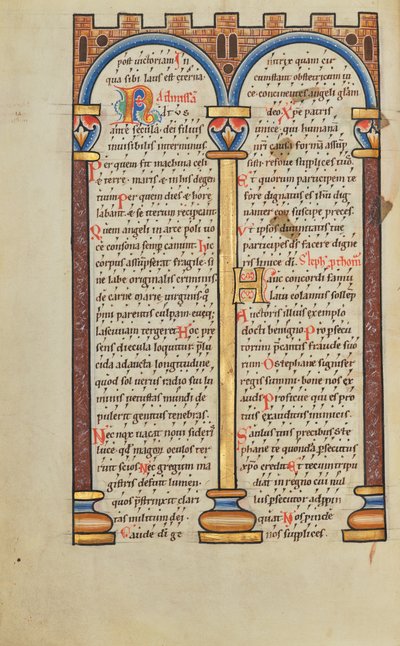 post victoriam In
qua sibi laus est eterna
Ad missā
Natus
ante secula dei filius
inuisibilis interminus
Per quem fit machina celi
& terre maris & in his degen
tium Per quem dies & hore
labant & se iterum recipiunt
Quem angeli in arce poli uo
ce consona semp canunt hic
corpus assūpserat fragile si
ne labe originalis criminis
de carne marie uirginis q
primi parentis culpam euęq;
lasciuiam tergeret Hoc pre
sens diecula loquitur
cida adaucta longitudine
quod sol uerus radio sui lu
minis uetustas mundi de
pulerit genitus tenebras
Nec nox uacat noui sideris
luce qd magorū oculos ter
ruit scios Nec gregum ma
gistris defuit lumen
quos p̄strinxit clari
tas militum dei
Gaude di ge
nitrix quam cir
cumstant obstetricum ui
ce concinentes angeli glām
deo Xpe patris
unice qui humanā
nr̄i causa formā assūp
sisti refoue supplices tuos
Et quorum participem te
fore dignatus es ihu dig
nanter eos suscipe preces
Vt ipsos diuinitatis tue
participes di facere digne
ris unice di Steph pthom
Hanc concordi famu
latu colamus sollēp
Auctoris illius exemplo
docti benigno Pro psecu
torum p̄cantis fraude suo
rum O stephane signifer
regis summi bone nos ex
audi Proficue qui es pro
tuis exauditus inimicis
Paulus tuis precibus ste
phane te quondā psecutus
xpo credit Et tecum tripu
diat in regno cui nul
lus psecutor appin
quat Nos proinde
nos supplices